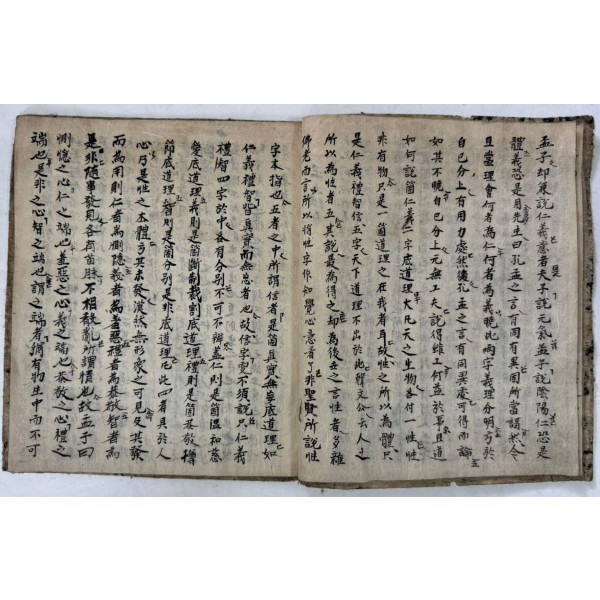 孟子却兼說仁義意者夫子說元氣孟子說陰陽仁恐是
體義恐是用先生曰孔孟之言有同有異固所當講然今
且當理會何者為仁何者為義曉此兩字義理分明方於
自己分上有用力處然後孔孟之言有同異處可得而論
如其不曉自己分上元無工夫說得雖工何益於事且道
如何說箇仁義二字底道理大凡天之生物各付一性性
非有物只是一箇道理之在我者耳故性之所以為體只
是仁義禮智信五字天下道理不出於此韓文公云人之
所以為性者五其說最為得之却為後世之言性者多雜
佛老而言所以將性字作知覺心意看了非聖賢所說性
字本指也五者之中所謂信者是箇真實無妄底道理如
仁義禮智皆真實而無妄者也故信字更不須說只仁義
禮智四字於中各有分別不可不辨盖仁則是箇溫和慈
愛底道理義則是箇斷制裁割底道理禮則是箇恭敬撙
節底道理智則是箇分別是非底道理凡此四者具於人
心乃是性之本體方其未發漠然無形象之可見及其發
而為用則仁者為惻隱義者為羞惡禮者為恭敬智者為
是非隨事發見各有苗脉不相殽亂所謂情也故孟子曰
惻隱之心仁之端也羞惡之心義之端也恭敬之心禮之
端也是非之心智之端也謂之端者猶有物在中而不可